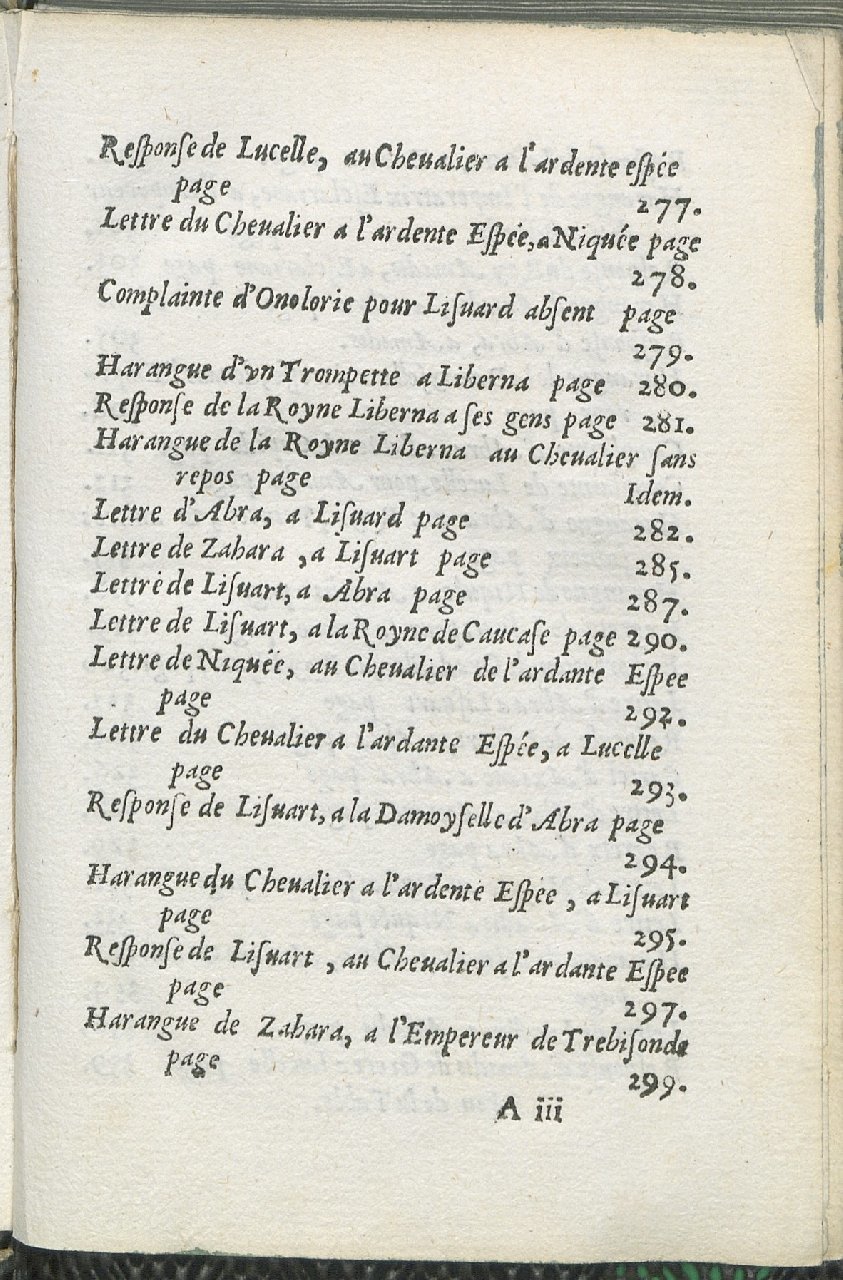 Reſponſe de Lucelle, au Chevalier a l'ardente eſpée
page 277.
Lettre du Chevalier a l'ardente Eſpée, a Niquée page
278.
Complainte d'Onolorie pour Liſuard abſent page
279.
Harangue d'vn Trompette a Liberna page 280.
Reſponſe de la Royne Liberna a ſes gens page 281.
Harangue de la Royne Liberna au Chevalier ſans
repos page Idem.
Lettre d'Abra, a Liſuard page 282.
Lettre de Zahara, a Liſuart page 285.
Lettre de Liſuart, a Abra page 287.
Lettre de Liſuart, a la Royne de Caucaſe page 290.
Lettre de Niquée, au Chevalier de l'ardante Eſpée
page 292.
Lettre du Chevalier a l'ardante Eſpée, a Lucelle
page 293.
Reſponſe de Liſuart, a la Damoyſelle d'Abra page
294.
Harangue du Chevalier a l'ardente Eſpée, a Liſuart
page 295.
Reſponſe de Liſuart, au Chevalier a l'ardante Eſpee
page 297.
Harangue de Zahara, a l'Empereur de Trebiſonde
page 299.
A iii